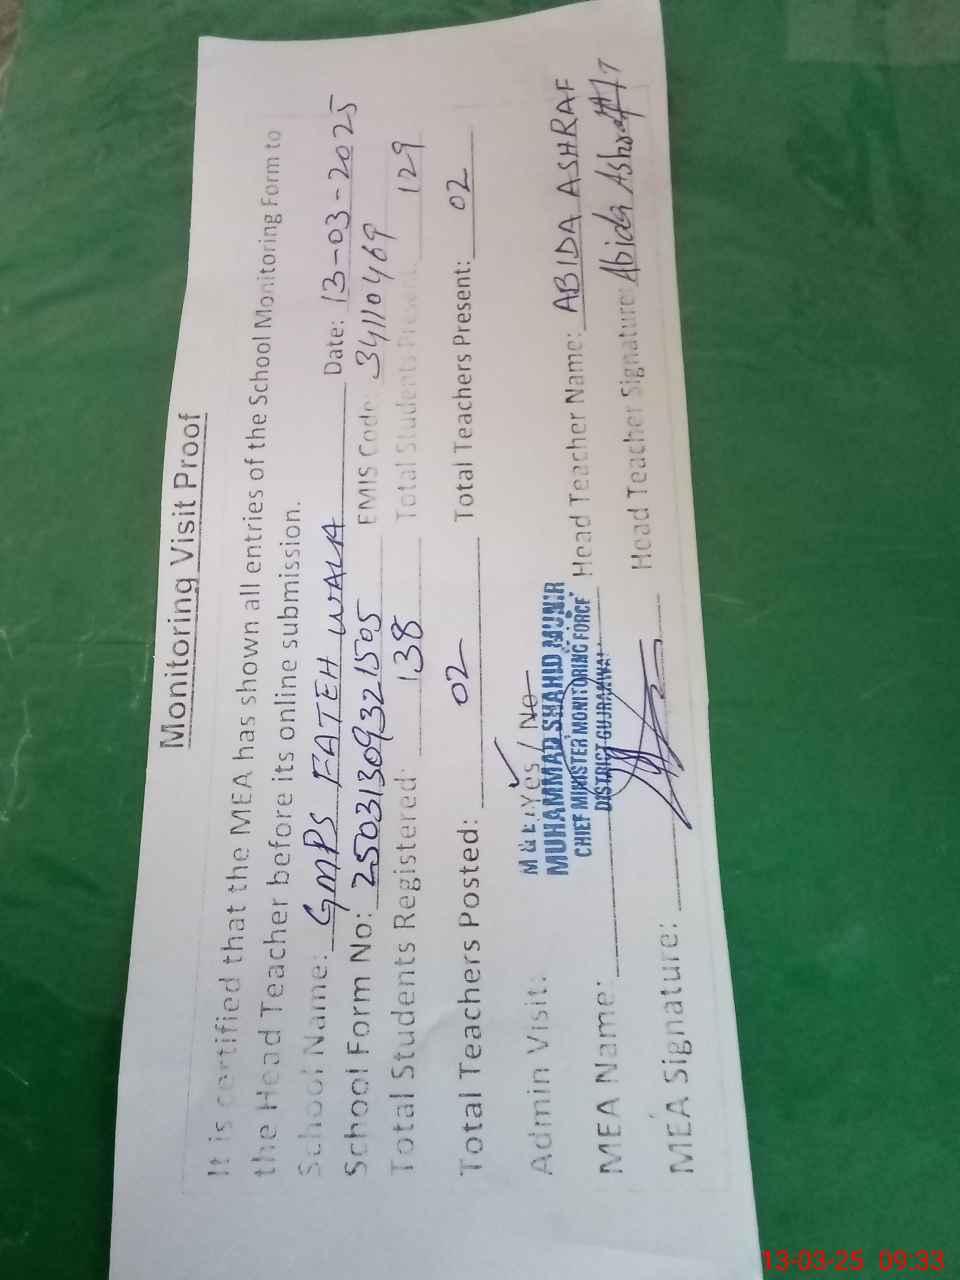 Monitoring Visit Proof
It is certified that the MEA has shown all entries of the School Monitoring Form to
the Head Teacher before its online submission.
School Name: GMPS FATEH WALA Date: 13-03-2025
School Form No: 250313093321505 EMIS Code: 34110469
Total Students Registered: 138 Total Students Present: 129
Total Teachers Posted: 02 Total Teachers Present: 02
Admin Visit: Yes / No
MUHAMMAD SHAHID MUNIR
CHIEF MINISTER MONITORING FORCE
DISTRICT GUJRANWALA
MEA Name: Head Teacher Name: ABIDA ASHRAF
MEA Signature: Head Teacher Signature: Abida Ashraf
13-03-25 09:33